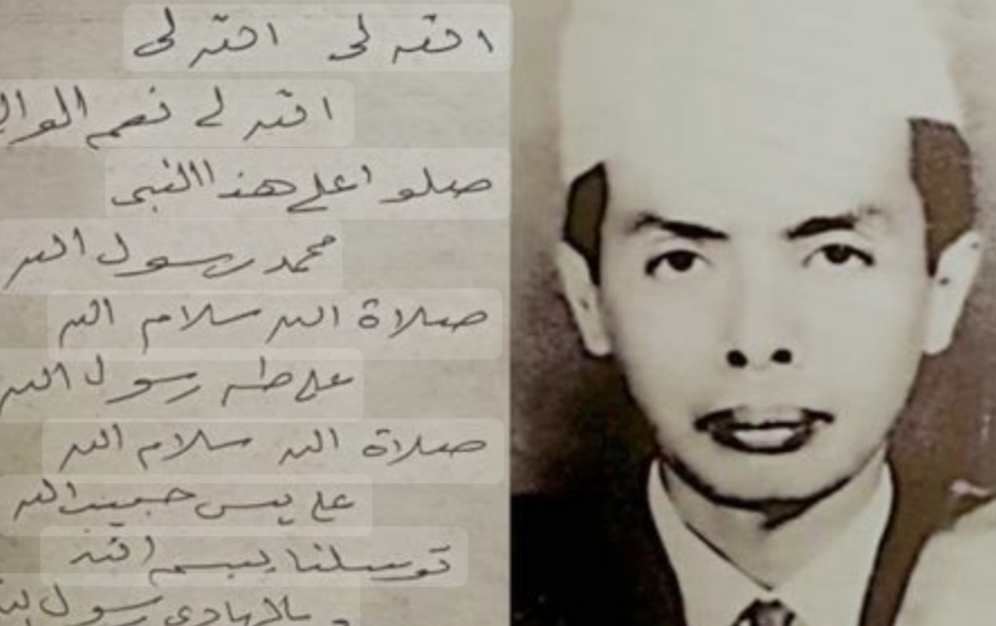 الله لي الله لي
الله لي نعم الوالي
صلوا على هذا النبي
محمد رسول الله
صلاة الله سلام الله
على طه رسول الله
صلاة الله سلام الله
على يس حبيب الله
توسلنا ببسم الله
وبالهادي رسول الله